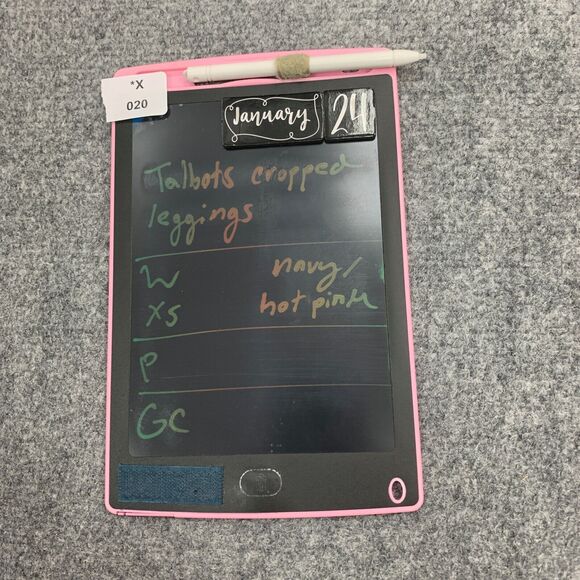 *X
020
January 24
Talbots cropped
leggings
W navy/
XS hot pink
P
GC